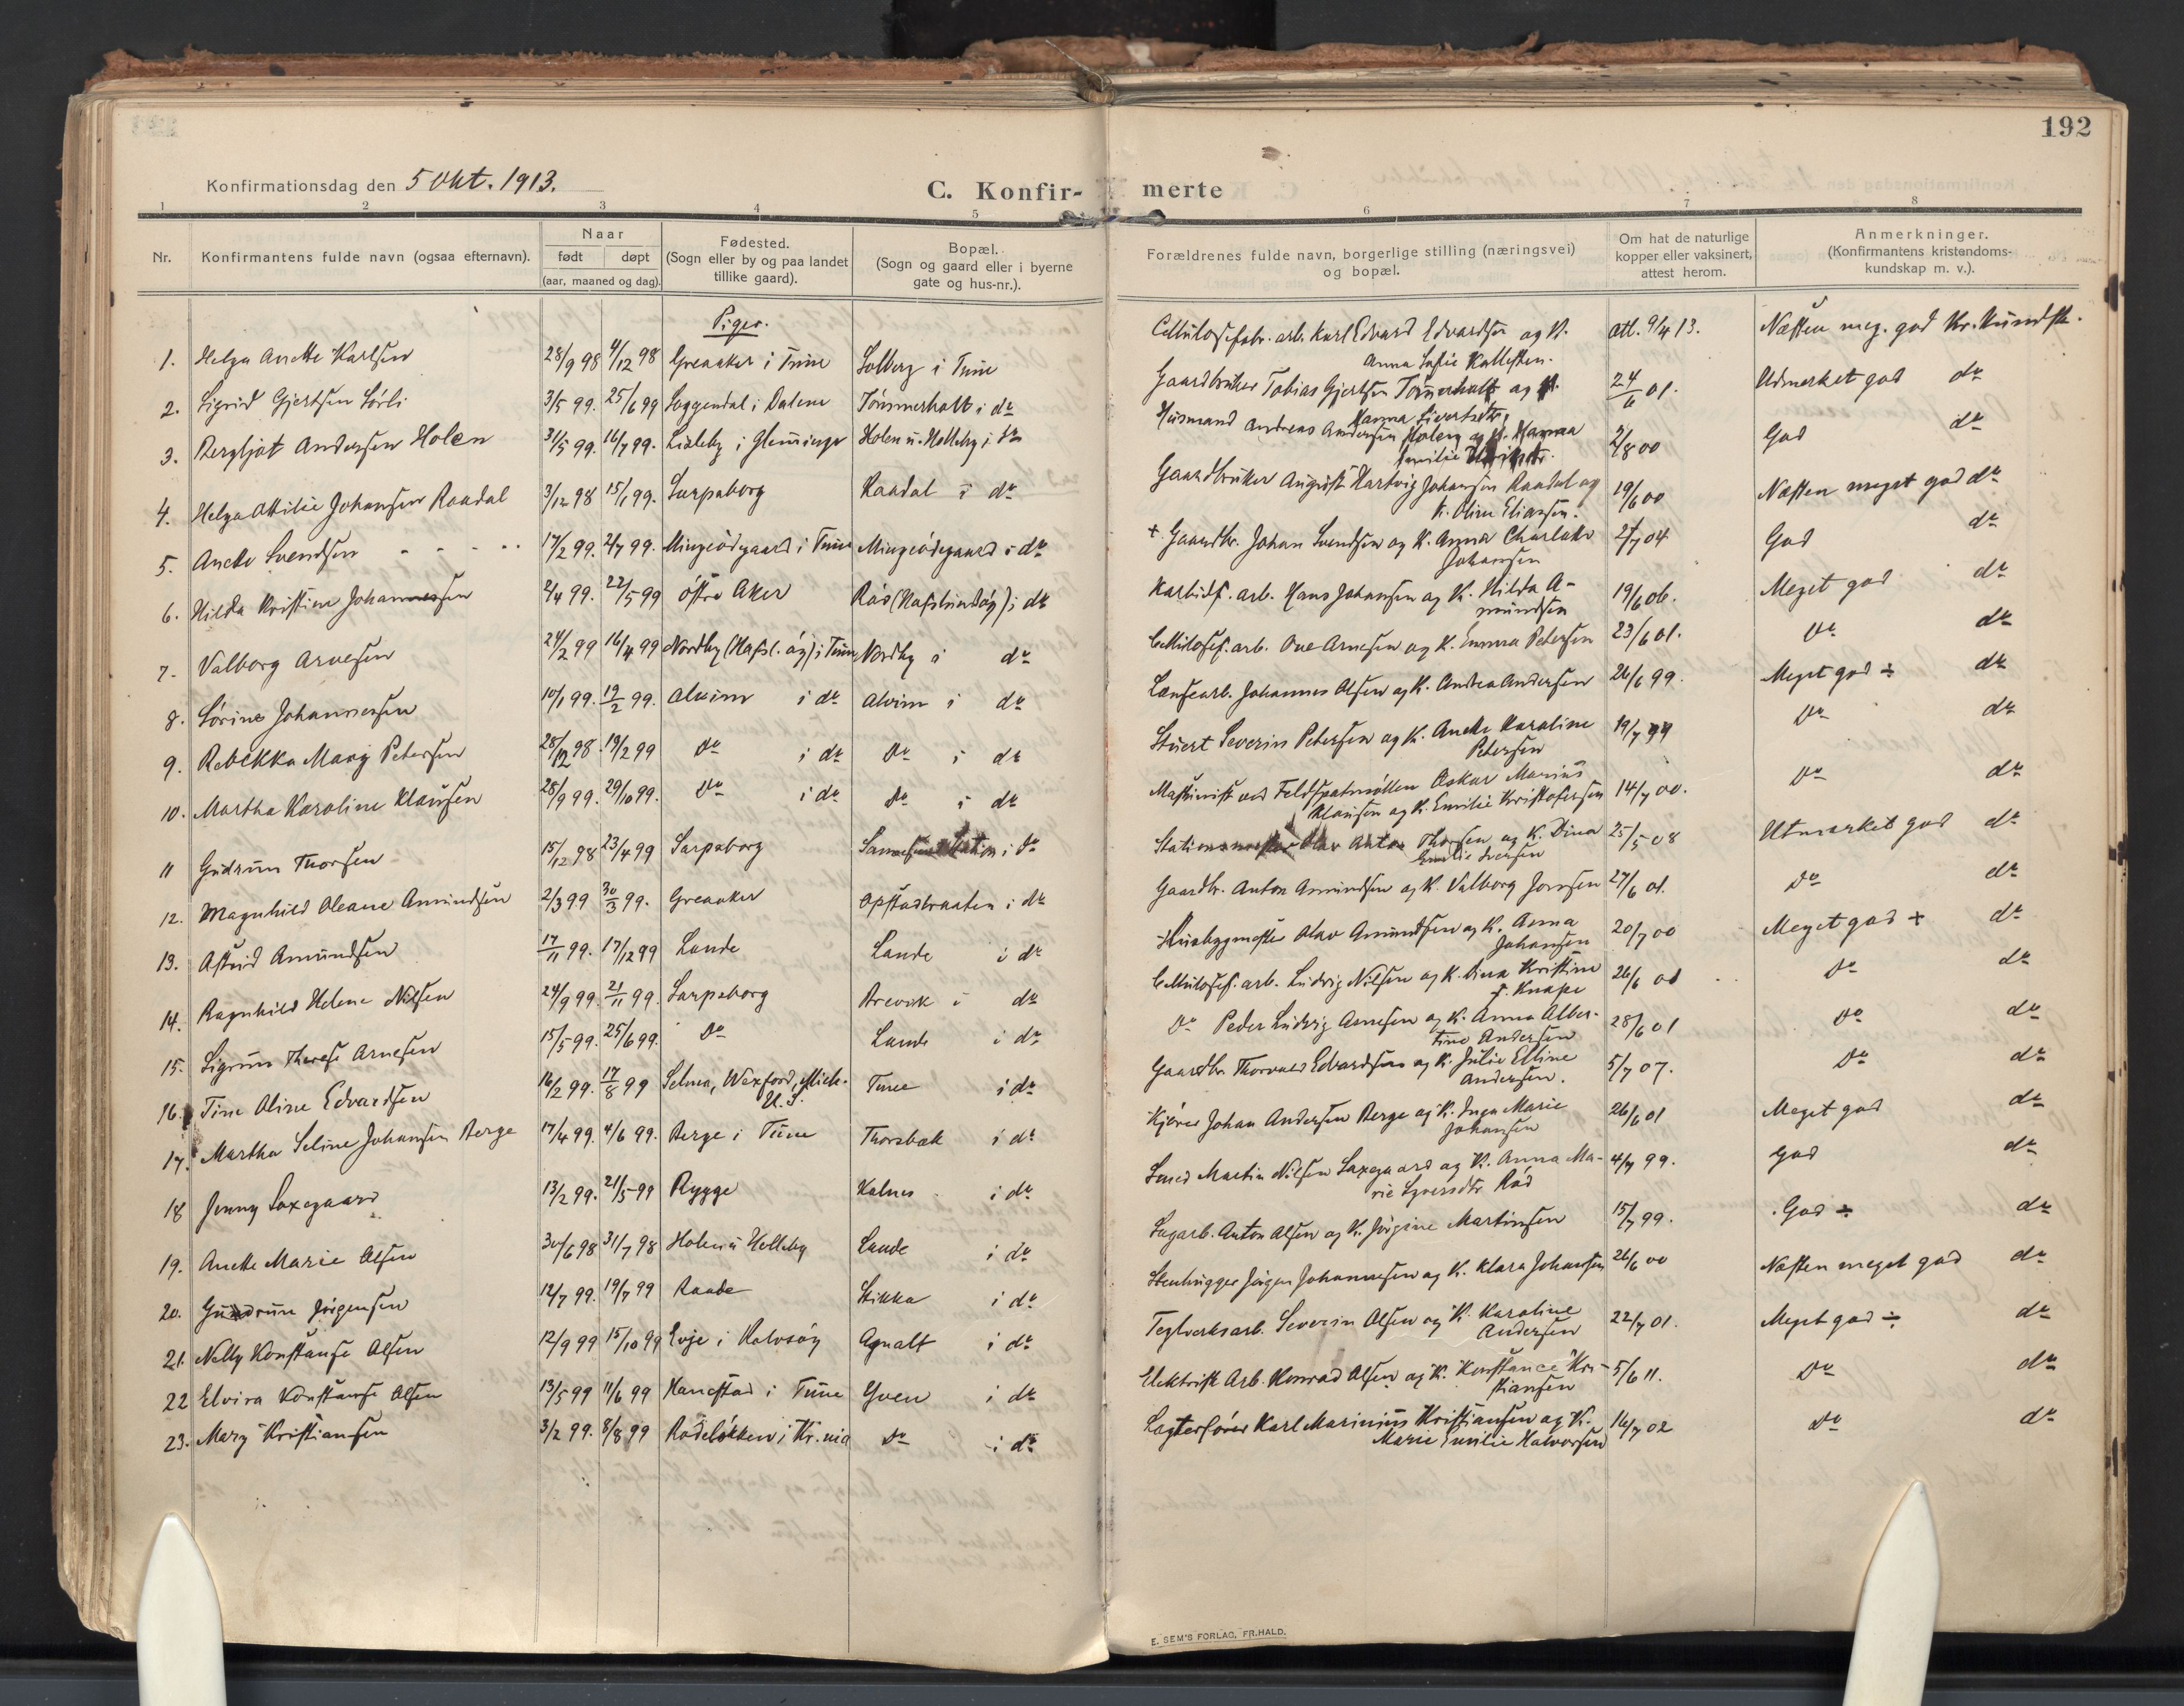 192
Konfirmationsdag den 5 Okt. 1913.
C. Konfir- merte
1 2 3 4 5 6 7 8
Nr. Konfirmantens fulde navn (ogsaa efternavn). Naar født døpt (aar, maaned og dag). Fødested. (Sogn eller by og paa landet tillike gaard). Bopæl. (Sogn og gaard eller i byerne gate og hus-nr.). Forældrenes fulde navn, borgerlige stilling (næringsvei) og bopæl. Om hat de naturlige kopper eller vaksinert, attest herom. Anmerkninger. (Konfirmantens kristendoms-kundskap m. v.).
Piger.
1. Helga Anette Karlsen 28/9 98 4/12 98 Greaaker i Tune Solberg i Tune Cellulosefabr. arb. Karl Edvard Edvardsen og K. Anna Sofie Kallesten. att. 9/4 13. Næsten meg. god Kr. kundsk.
2. Sigrid Gjertsen Sørli 3/5 99. 25/6 99 Soggendal i Dalene Tømmerholt i do Gaardbruker Tobias Gjertsen Tømmerholt og K. Hanna Sivertsdtr. 24/6 01. Udmerket god do
3. Bergljot Andersen Holen 31/5 99. 16/7 99. Lisleby i Glemminge Holen u. Helleby i do Husmand Andreas Andersen Holen og K. Hanna Emilie 2/8 00 God do
4. Helga Otilie Johansen Raadal 3/12 98 15/1 99. Sarpsborg Raadal i do Gaardbruker August Hartvig Johansen Raadal og K. Oline Eliassen. 19/6 00 Næsten meget god do
5. Anette Svendsen 17/2 99. 2/7 99. Mingeødegaard i Tune Mingeødegaard i do + Gaardbr. Johan Svendsen og K. Anna Charlotte Johansen 2/7 04 God do
6. Hilda Kristine Johannessen 2/4 99. 22/5 99 Østre Aker Raos (Hafslundsøy) i do Karbidf. arb. Hans Johansen og K. Hilda A-mundsen 19/6 06. Meget god do
7. Valborg Arnesen 24/2 99 16/4 99 Nordby (Hafsl. øy) i Tune Nordby i do Cellulosef. arb. Ove Arnesen og K. Emma Petersen 23/6 01. do do
8. Sørine Johannessen 10/1 99. 19/2 99. Alvim i do Alvim i do Lensearb. Johannes Olsen og K. Andrea Andersen 26/6 99. Meget god ÷ do
9. Rebekka Mary Petersen 28/12 98. 19/2 99 do i do do i do Stuert Severin Petersen og K. Anette Karoline Petersen 19/7 99 do do
10. Martha Karoline Klausen 28/9 99. 29/10 99. do i do do i do Maskinist ved Feldspatmøllen Oskar Marius Klausen og K. Emilie Kristofersen 14/7 00. do do
11 Gudrun Thorsen 15/12 98 23/4 99 Sarpsborg Sannesund Station i do Stationsmester Olav Anton Thorsen og K. Dina Emilie Iversen 25/5 08 Utmærket god do
12. Magnhild Oleane Amundsen 2/3 99 30/3 99. Greaaker Opstadbraaten i do Gaardbr. Anton Amundsen og K. Valborg Jonsen 27/6 01. do do
13. Astrid Amundsen 17/11 99. 17/12 99 Lande Lande i do Husbygmester Olav Amundsen og K. Anna Johansen 20/7 00 Meget god + do
14. Ragnhild Helene Nilsen 24/9 99. 21/11 99. Sarpsborg Brevik i do Cellulosef. arb. Ludvig Nilsen og K. Lina Kristine f. Knape 26/6 01 do do
15. Sigrun Therese Arnesen 15/5 99. 25/6 99. do Lande i do do Peder Ludvig Arnesen og K. Anna Alber-tine Andersen 28/6 01 do do
16. Tine Oline Edvardsen 16/2 99. 17/8 99 Selma, Wexford, Mich. U. S. Tune i do Gaardbr. Thorvald Edvardsen og K. Julie Elline Andersen. 5/7 07. do do
17. Martha Seline Johansen Berge 17/4 99. 4/6 99. Berge i Tune Thorsbæk i do Kjører Johan Andersen Berge og K. Inga Marie Johansen 26/6 01 Meget god do
18 Jenny Saxegaard 13/2 99. 21/5 99 Rygge Kalnes i do Smed Martin Nilsen Saxegaard og K. Anna Ma-rie Syversdtr. Rød 4/7 99. God do
19. Anette Marie Olsen 30/6 98 31/7 98 Holen u. Helleby Lande i do Sagarb. Anton Olsen og K. Jørgine Martinsen 15/7 99. God ÷ do
20. Gundrun Jørgensen 12/7 99. 19/7 99 Raade Stikka i do Stenhugger Jørgen Johannesen og K. Klara Johansen 26/6 00 Næsten meget god do
21. Nelly Konstanse Olsen 12/9 99 15/10 99 Evje i Rolvsøy Agnalt i do Teglverksarb. Severin Olsen og K. Karoline Andersen 22/7 01. Meget god ÷ do
22 Elvira Konstanse Olsen 13/5 99 11/6 99 Hanestad i Tune Yven i do Elektrisk Arb. Konrad Olsen og K. Konstance Kri-stiansen 5/6 11. do do
23. Mary Kristiansen 3/2 99. 8/8 99 Rodeløkken i Kr.nia do i do Lægterfører Karl Marinius Kristiansen og K. Marie Emilie Halvorsen 16/7 02 do do
E. SEM'S FORLAG, FR.HALD.